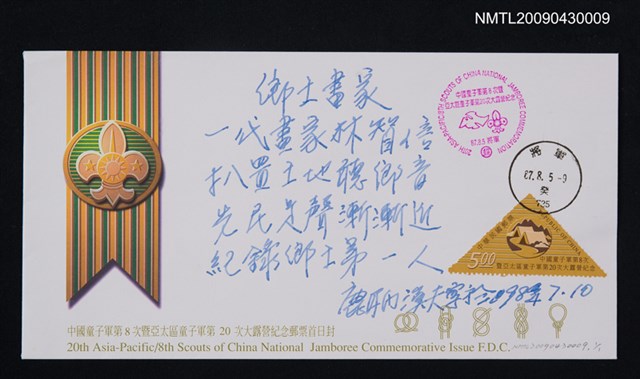 NMTL20090430009
鄉土畫家
一代畫家林智信
扒置土地聽鄉音
先民足聲漸漸近
紀錄鄉土第一人
20TH ASIA-PACIFIC/8TH SCOUTS OF CHINA NATIONAL JAMBOREE COMMEMORATION
中國童子軍第8次暨
亞太區童子軍第20次大露營紀念
87.8.5 將軍
將軍
87.8.5-9
癸
725
5.00
中國童子軍第8次
暨亞太區童子軍第20次大露營紀念
1998年7.10
中國童子軍第8次暨亞太區童子軍第 20 次大露營紀念郵票首日封
20th Asia-Pacific/8th Scouts of China National Jamboree Commemorative Issue F.D.C.
NMTL20090430009